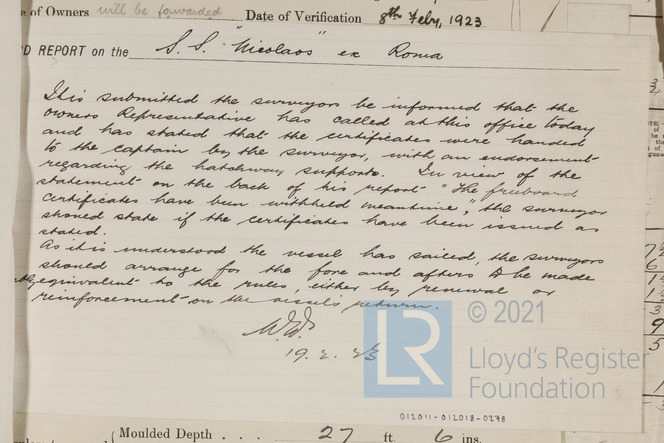 e of Owners will be forwarded Date of Verification 8th Feby, 1923
D REPORT on the S.S. "Nicolaos" ex Roma
It is submitted the surveyors be informed that the
owners Representative has called at this office today
and has stated that the certificates were handed
to the captain by the surveyor, with an endorsement
regarding the hatchway supports. In view of the
statement on the back of his report "The freeboard
certificates have been withheld meantime", the surveyor
should state if the certificates have been issued as
stated.
As it is understood the vessel has sailed, the surveyors
should arrange for the fore and afters to be made
equivalent to the rules, either by renewal or
reinforcement on the vessel's return.
19.2.23
© 2021
LR
Lloyd's Register
Foundation
012011-012018-0278
Moulded Depth . . . 27 ft. 6 ins.